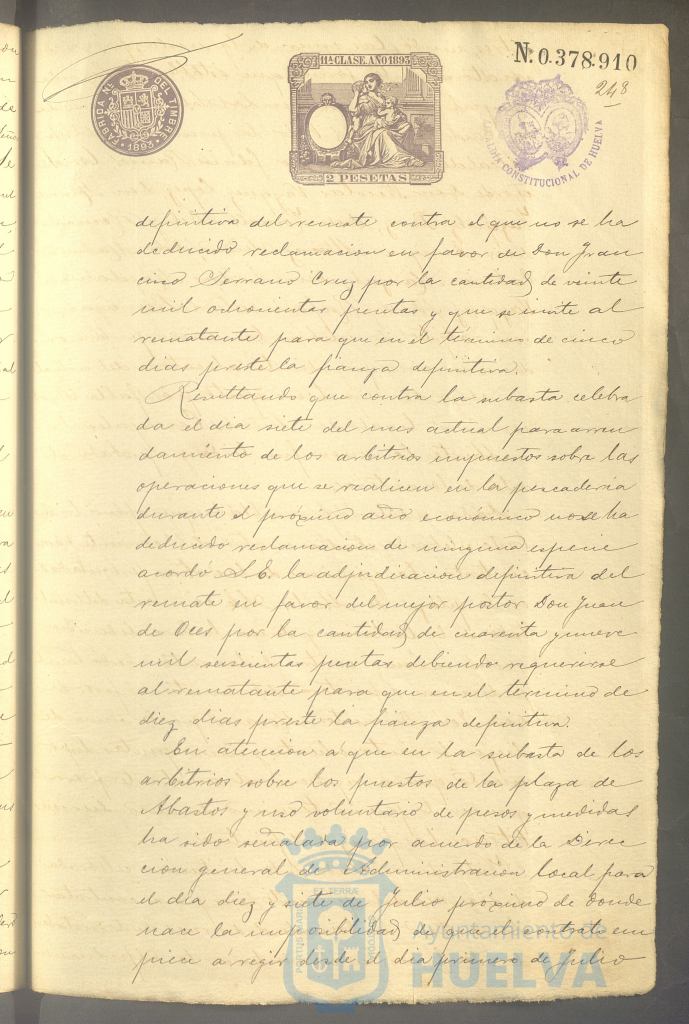 11ª CLASE. AÑO 1893
N. 0.378.910
248
FABRICA NL. DEL TIMBRE
1893
2 PESETAS
ALCALDIA CONSTITUCIONAL DE HUELVA
definitiva del remate contra el que no se ha
deducido reclamacion en favor de Don Fran
cisco Serrano Cruz por la cantidad de veinte
mil ochocientas pesetas y que se invite al
rematante para que en el termino de cinco
dias preste la fianza definitiva.
Resultando que contra la subasta celebra
da el dia siete del mes actual para arren
damiento de los arbitrios impuestos sobre las
operaciones que se realicen en la pescaderia
durante el próximo año económico no se ha
deducido reclamacion de ninguna especie
acordó S.E. la adjudicacion definitiva del
remate en favor del mejor postor Don Juan
de Oces por la cantidad de cuarenta y nueve
mil seiscientas pesetas debiendo requerirse
al rematante para que en el termino de
diez dias preste la fianza definitiva.
En atencion á que en la subasta de los
arbitrios sobre los puestos de la plaza de
Abastos y uso voluntario de pesos y medidas
ha sido señalada por acuerdo de la Direc
cion general de Administración local para
el dia diez y siete de Julio próximo de donde
nace la imposibilidad de que el contrato em
piece á regir desde el dia primero de Julio
PORTUS MARIS ET TERRÆ CUSTODIA
Ayuntamiento de
HUELVA